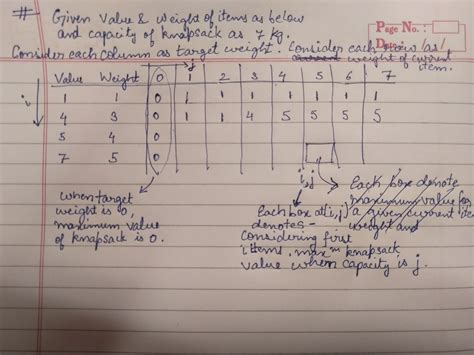 # Given Value & Weight of items as below
Page No.:
and capacity of knapsack as 7 kg.
Date: / /
Consider each column as target weight. Consider each row as
weight of current
item.
Value Weight 0 1 2 3 4 5 6 7
j
i
1 1 0 1 1 1 1 1 1 1
4 3 0 1 1 4 5 5 5 5
5 4 0
7 5 0
i,j
when target
weight is 0,
maximum value
of knapsack is 0.
Each box at (i,j)
denotes -
Considering first
i items, maxm knapsack
value when capacity is j.
Each box denote
maximum value for
a given current
weight and